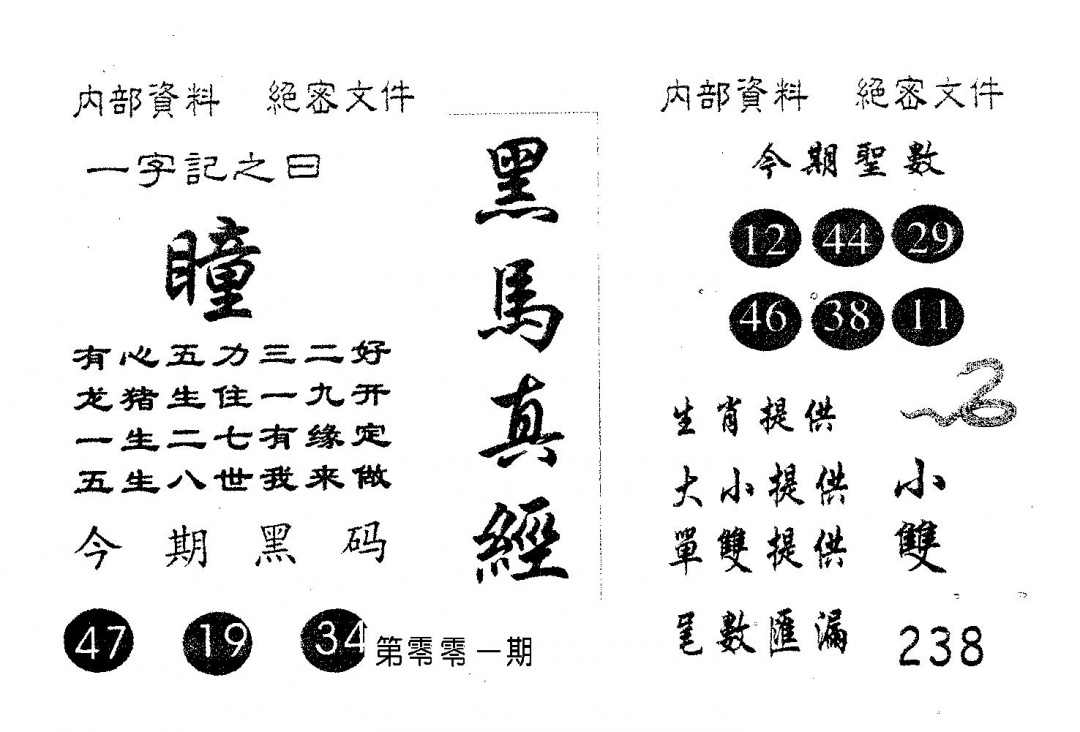 内部資料 絕密文件
一字記之曰
瞳
有心五力三二好
龙猪生住一九开
一生二七有缘定
五生八世我来做
今期黑码
47 19 34
第零零一期
黑馬真經
内部資料 絕密文件
今期聖數
12 44 29
46 38 11
生肖提供
大小提供 小
單雙提供 雙
尾數匯漏 238